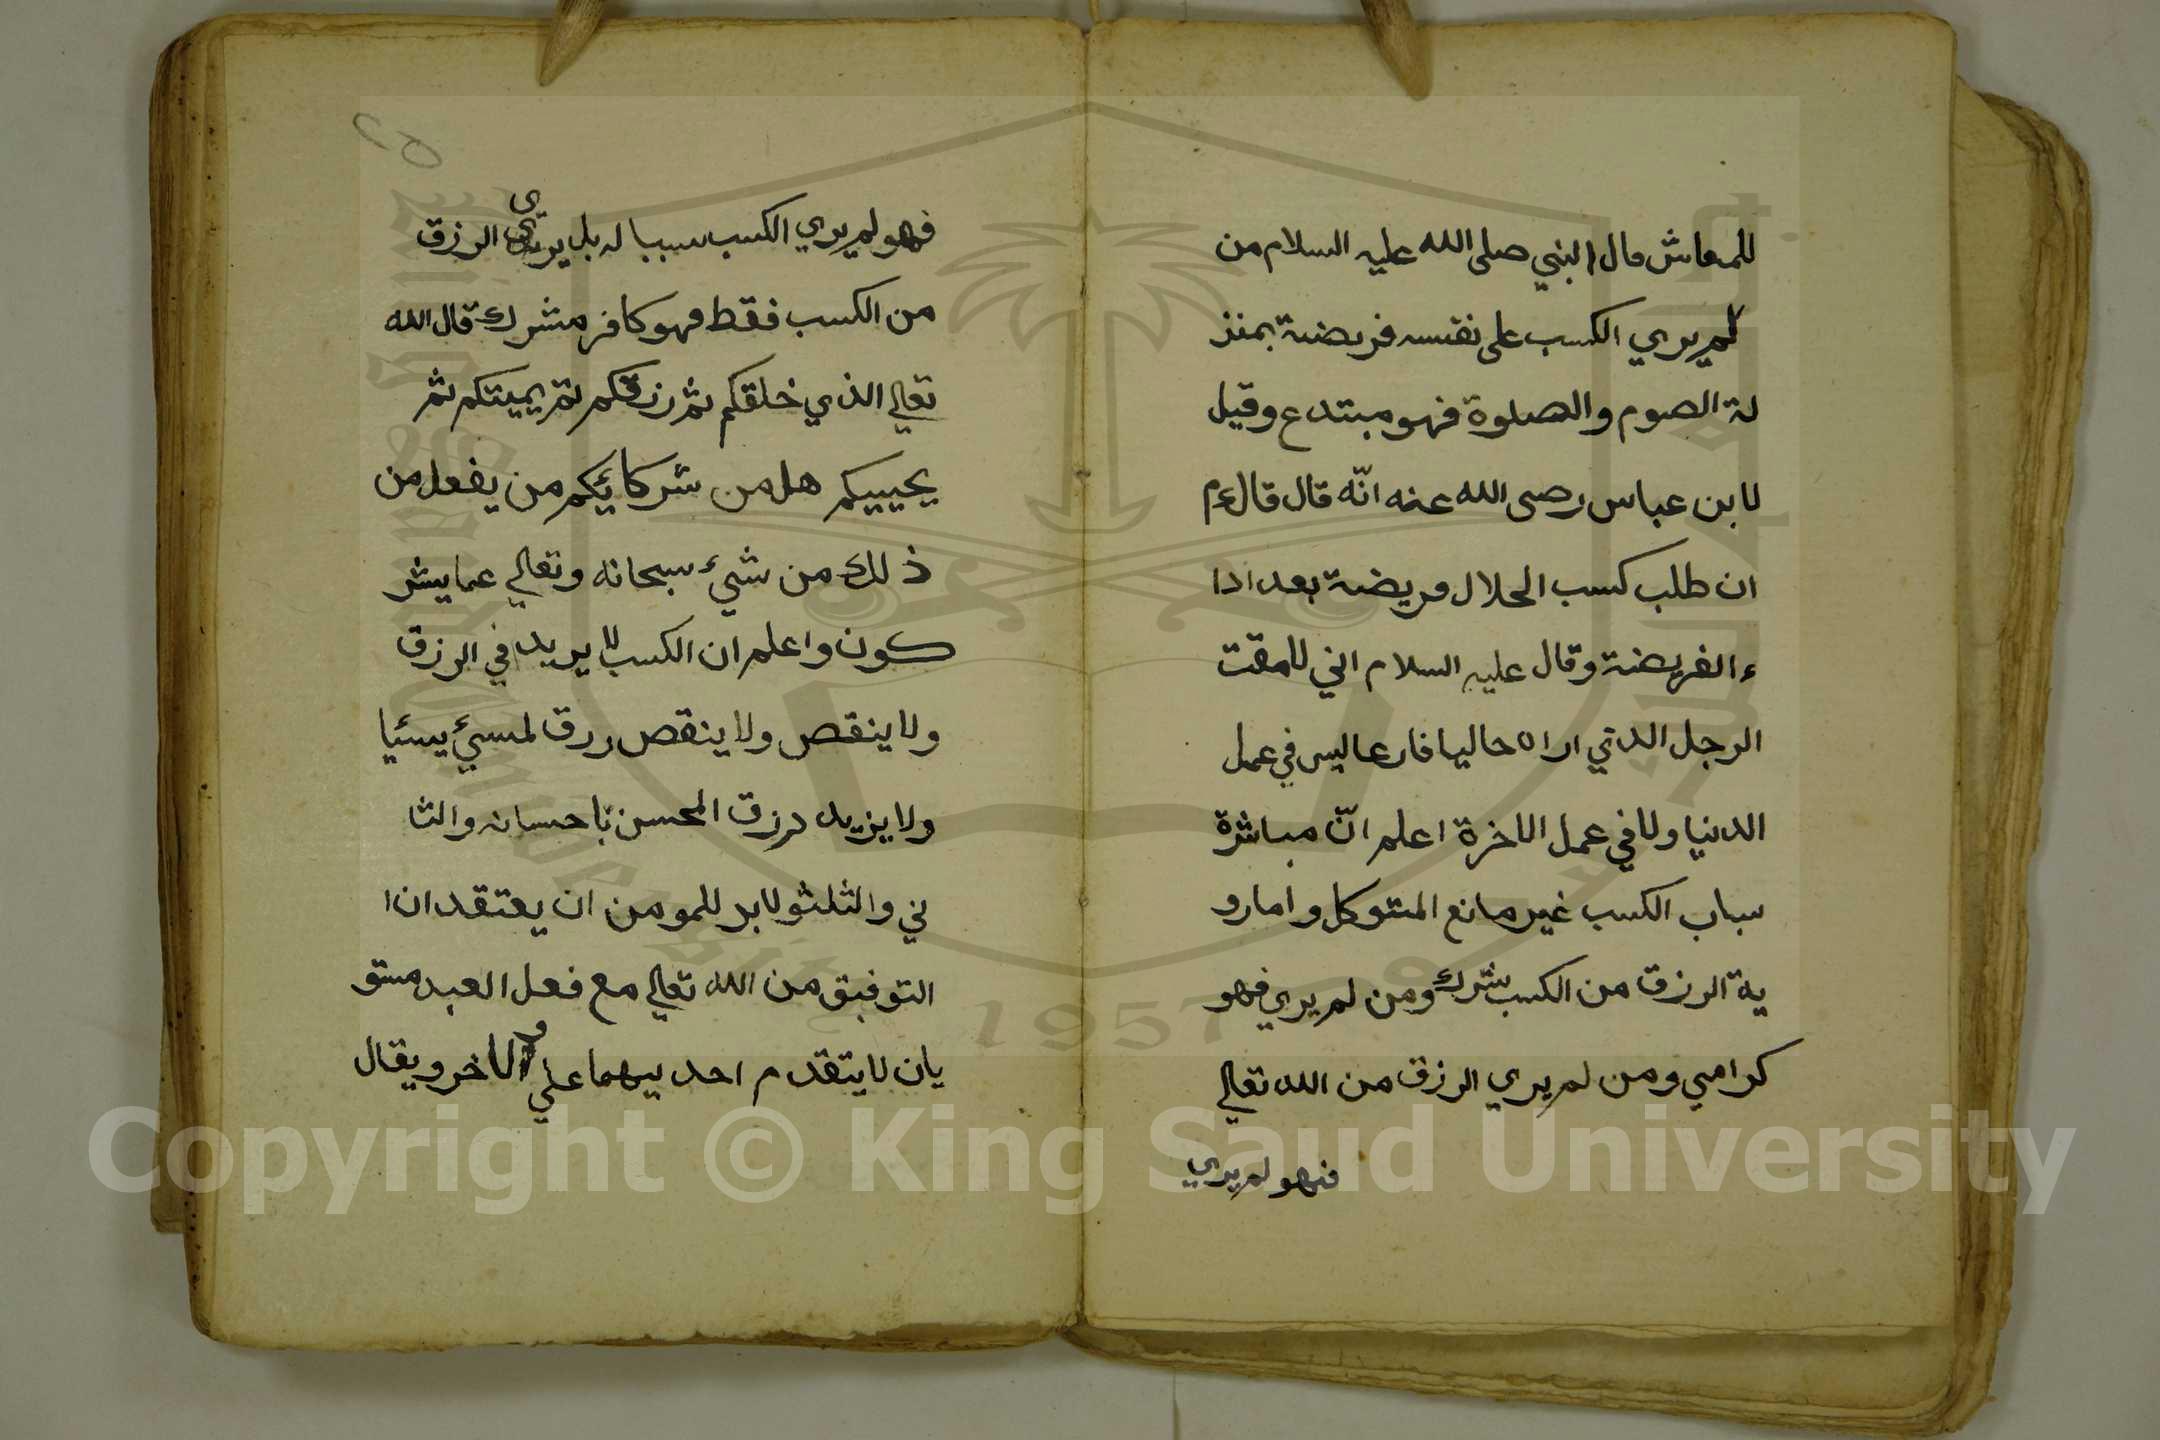 للمعاش قال النبي صلى الله عليه السلام من
لم يري الكسب على نفسه فريضة بمنز
لة الصوم والصلوة فهو مبتدع وقيل
لابن عباس رضى الله عنه انّه قال قال ءم
ان طلب كسب الحلال فريضة بعد ادا
ء الفريضة وقال عليه السلام اني لامقت
الرجل الذي اراه خاليا فارغا ليس في عمل
الدنيا ولا في عمل الاخرة اعلم انّ مباشرة
سباب الكسب غير مانع المتوكل و اما رو
ية الرزق من الكسب شرك ومن لم يري فهو
كرامي ومن لم يري الرزق من الله تعالي
فهو لم يري
٢٥
فهو لم يري الكسب سببا له بل يري الرزق
من الكسب فقط فهو كافر مشرك قال الله
تعالي الذي خلقكم ثم رزقكم ثم يميتكم ثم
يحييكم هل من شركائكم من يفعل من
ذلك من شيء سبحانه وتعالي عما يشر
كون واعلم ان الكسب لا يريد في الرزق
ولا ينقص ولا ينقص ررق لمسيئ يسئيا
ولا يزيد رزق المحسن باحسانه والثا
ني والثلث لابد للمومن ان يعتقد ان ا
التوفيق من الله تعالي مع فعل العبد مستو
يان لا يتقدم احد بيهما علي الاخر ويقال
Copyright © King Saud University
King Saud University
1957